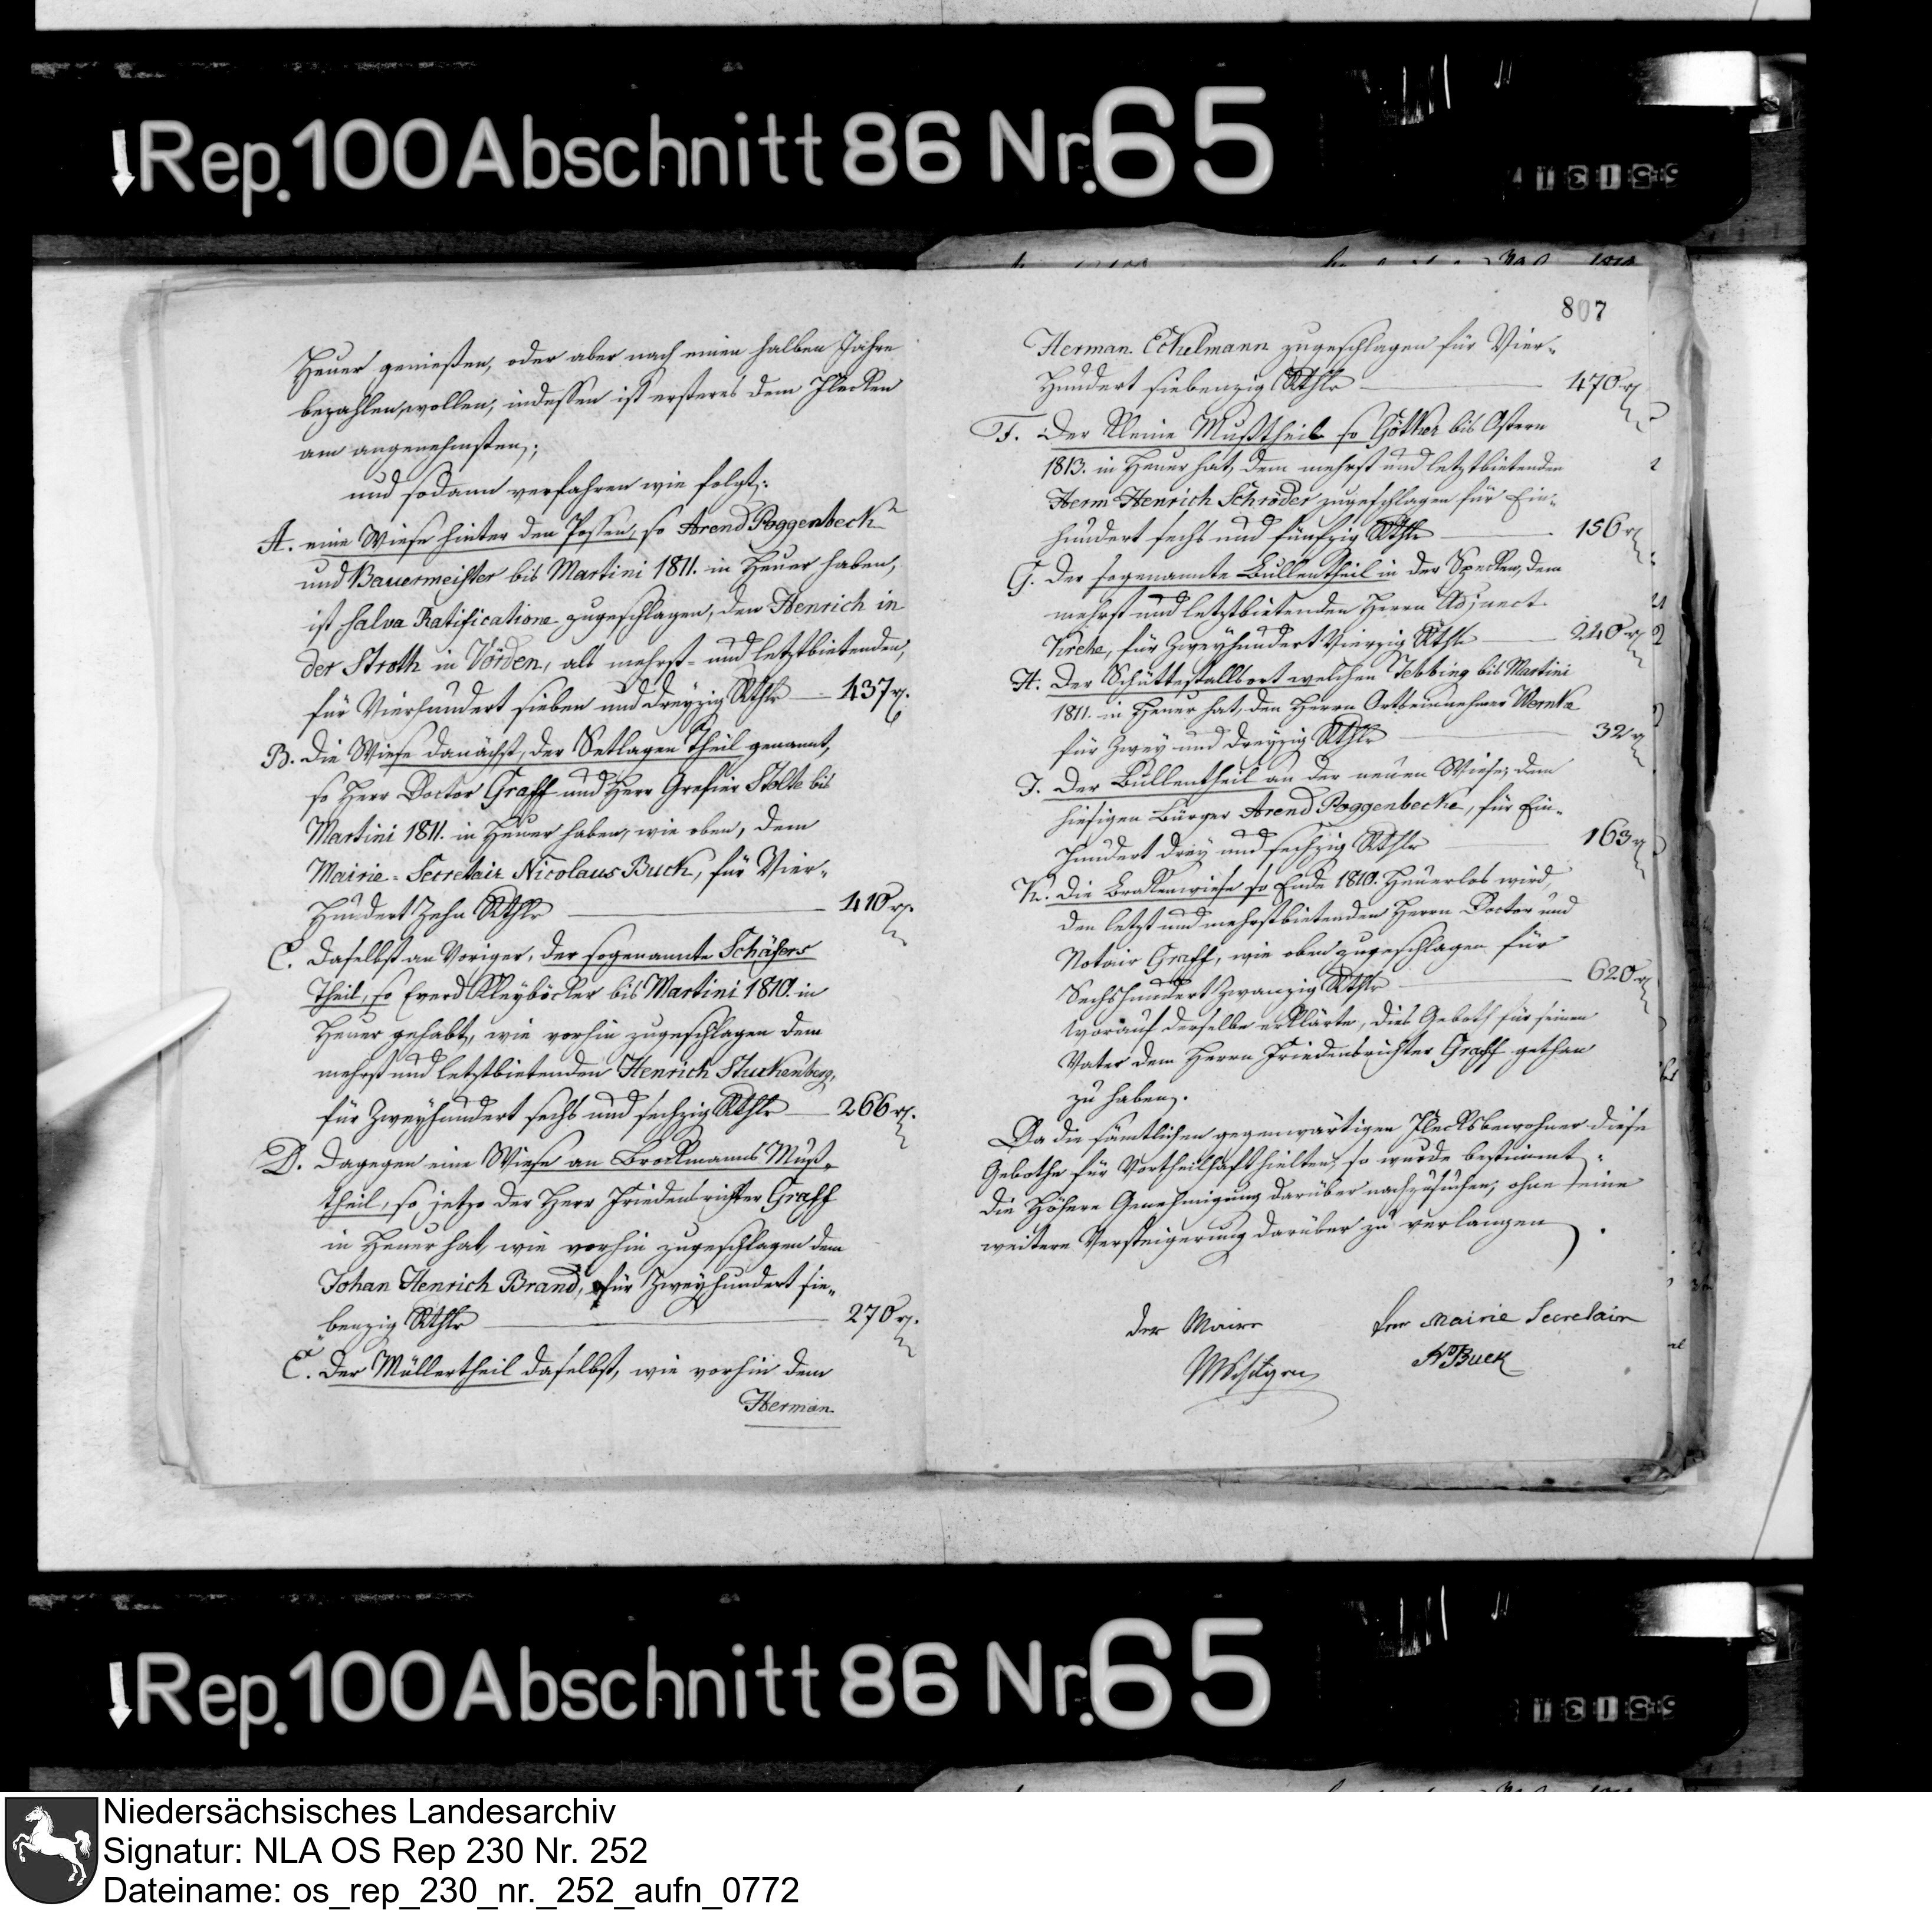 Rep. 100 Abschnitt 86 Nr. 65
Heuer genießen, oder aber nach einen halben Jahre
bezahlen, wollen, indessen ist ersteres dem Flecken
am angenehmsten;
und sodann verfahren wie folgt:
A. eine Wiese hinter den Possen, so Arend Poggenbeck
und Bauermeister bis Martini 1811. in Heuer haben,
ist salva Ratificatione zugeschlagen, den Henrich in
der Stroth in Vörden, als mehrst- und letztbietenden,
für Vierhundert sieben und dreyzig Rthlr — 437 r.
B. Die Wiese danächst, der Setlagen Theil genannt,
so Herr Doctor Graff und Herr Grefier Stolte bis
Martini 1811. in Heuer haben, wie oben, dem
Mairie-Secretair Nicolaus Buck, für Vier-
Hundert Zehn Rthlr — 410 r.
C. Daselbst an Voriger, der sogenannte Schäfers
Theil, so Everd Kleyböcker bis Martini 1810. in
Heuer gehabt, wie vorhin zugeschlagen dem
mehrst und letztbietenden Henrich Stuckenberg,
für Zweyhundert sechs und sechzig Rthlr — 266 r.
D. Dagegen eine Wiese an Brockmanns Muß-
theil, so jetzo der Herr Friedensrichter Graff
in Heuer hat, wie vorhin zugeschlagen dem
Johan Henrich Brand, für Zweyhundert sie-
benzig Rthlr — 270 r.
E. Der Müllertheil daselbst, wie vorhin dem
Herman
807
Herman Eckelmann zugeschlagen für Vier-
Hundert siebenzig Rthlr — 470 r
F. Der kleine Mußtheil so Göthker bis Ostern
1813. in Heuer hat, dem mehrst und letztbietenden
Herm Henrich Schröder zugeschlagen für Ein-
hundert sechs und fünfzig Rthlr — 156 r
G. Der sogenannte Bullentheil in der Specken, dem
mehrst und letztbietenden Herrn Adjunct
Kirche, für Zweyhundert Vierzig Rthlr — 240 r
H. Der Schüttestallsort welchen Tebbing bis Martini
1811. in Heuer hat, den Herrn Ortseinnehmer Wernke
für Zwey und dreyzig Rthlr — 32 r
I. Der Bullentheil an der neuen Wiese, dem
hiesigen Bürger Arend Poggenbecke, für Ein-
Hundert drey und sechzig Rthlr — 163 r
K. Die Brakenwiese so Ende 1810. Heuerlos wird,
den letzt und mehrstbietenden Herrn Doctor und
Notair Graff, wie oben zugeschlagen für
Sechshundert Zwanzig Rthlr — 620 r
Worauf derselbe erklärte, dies Geboth für seinen
Vater dem Herrn Friedensrichter Graff gethan
zu haben.
Da die sämtlichen gegenwärtigen Flecksbewohner diese
Gebothe für Vortheilhaft hielten, so wurde bestimmt,
die Höhere Genehmigung darüber nachzusuchen, ohne eine
weitere Versteigerung darüber zu verlangen.
der Maire
der Mairie Secretair
N Buck
Rep. 100 Abschnitt 86 Nr. 65
Niedersächsisches Landesarchiv
Signatur: NLA OS Rep 230 Nr. 252
Dateiname: os_rep_230_nr._252_aufn_0772